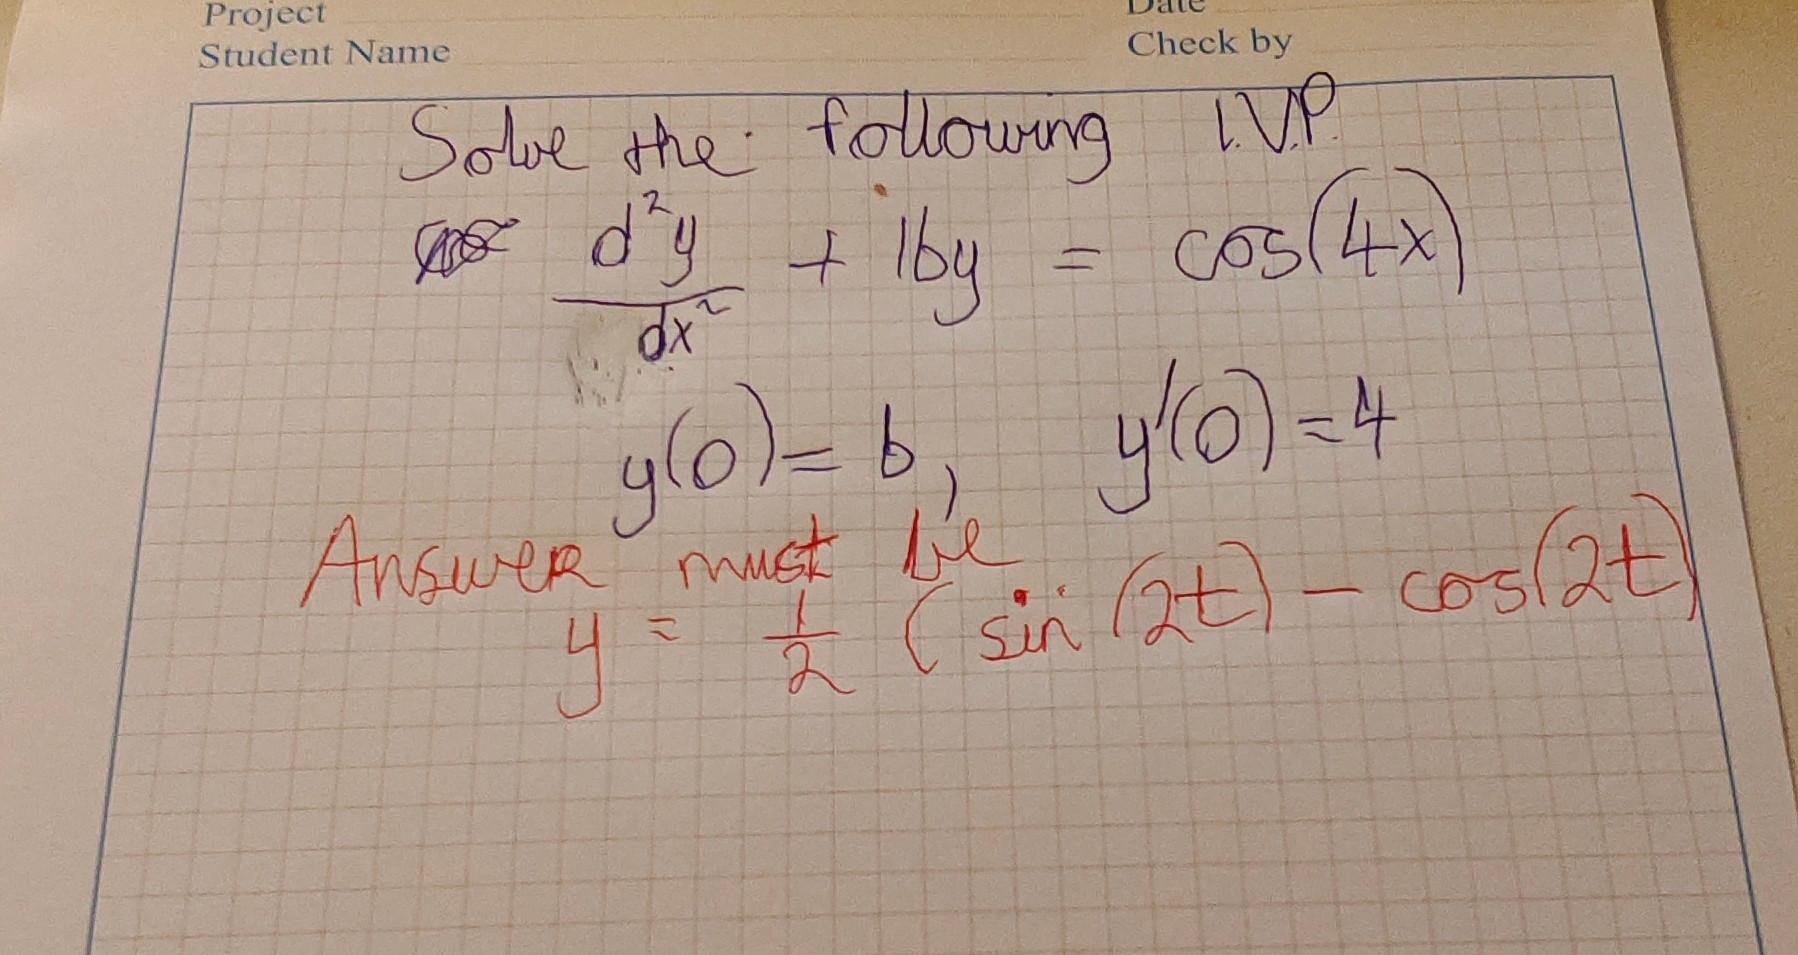 Project
Date
Student Name
Check by
Solve the following I.V.P.
d²y/dx² + 16y = cos(4x)
y(0) = 6, y'(0) = 4
Answer must be
y = 1/2 (sin(2t) - cos(2t)